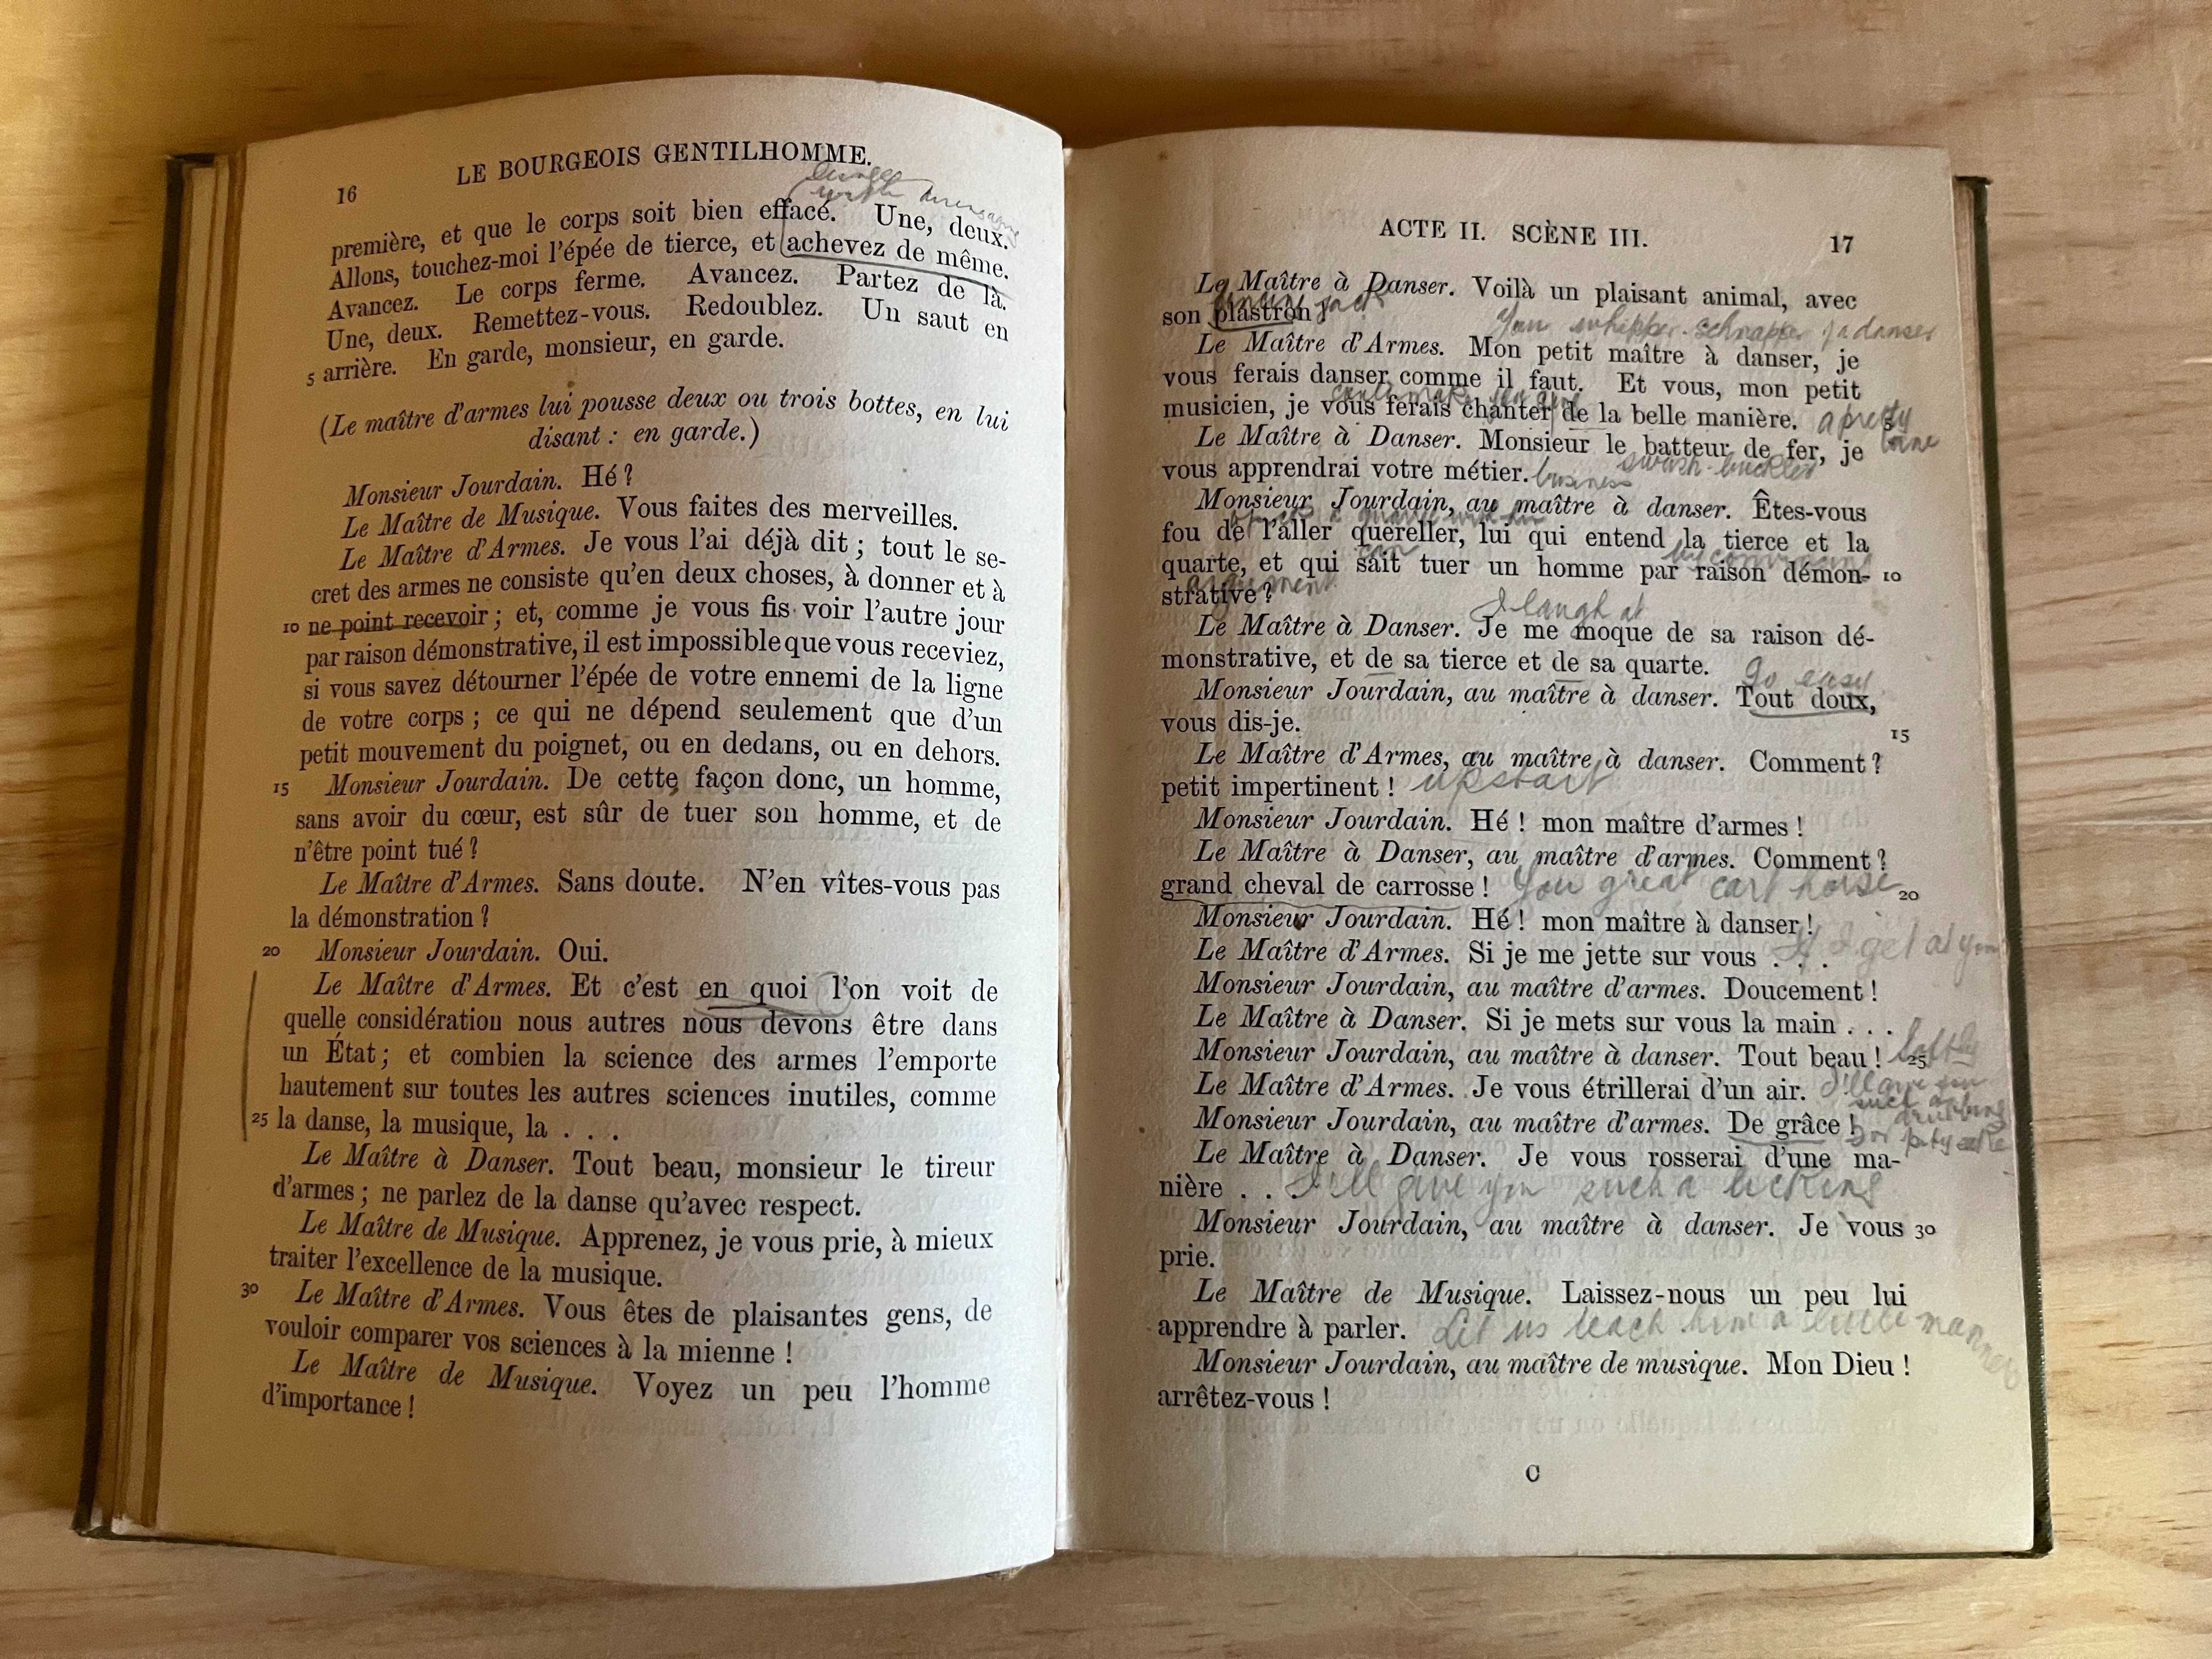 16
LE BOURGEOIS GENTILHOMME.
with
première, et que le corps soit bien effacé. Une, deux.
Allons, touchez-moi l'épée de tierce, et achevez de même.
Avancez. Le corps ferme. Avancez. Partez de là.
Une, deux. Remettez-vous. Redoublez. Un saut en
5 arrière. En garde, monsieur, en garde.
(Le maître d'armes lui pousse deux ou trois bottes, en lui
disant : en garde.)
Monsieur Jourdain. Hé ?
Le Maître de Musique. Vous faites des merveilles.
Le Maître d'Armes. Je vous l'ai déjà dit ; tout le se-
cret des armes ne consiste qu'en deux choses, à donner et à
10 ne point recevoir ; et, comme je vous fis voir l'autre jour
par raison démonstrative, il est impossible que vous receviez,
si vous savez détourner l'épée de votre ennemi de la ligne
de votre corps ; ce qui ne dépend seulement que d'un
petit mouvement du poignet, ou en dedans, ou en dehors.
15 Monsieur Jourdain. De cette façon donc, un homme,
sans avoir du cœur, est sûr de tuer son homme, et de
n'être point tué ?
Le Maître d'Armes. Sans doute. N'en vîtes-vous pas
la démonstration ?
20 Monsieur Jourdain. Oui.
Le Maître d'Armes. Et c'est en quoi l'on voit de
quelle considération nous autres nous devons être dans
un État ; et combien la science des armes l'emporte
hautement sur toutes les autres sciences inutiles, comme
25 la danse, la musique, la . . .
Le Maître à Danser. Tout beau, monsieur le tireur
d'armes ; ne parlez de la danse qu'avec respect.
Le Maître de Musique. Apprenez, je vous prie, à mieux
traiter l'excellence de la musique.
30 Le Maître d'Armes. Vous êtes de plaisantes gens, de
vouloir comparer vos sciences à la mienne !
Le Maître de Musique. Voyez un peu l'homme
d'importance !
ACTE II. SCÈNE III.
17
Le Maître à Danser. Voilà un plaisant animal, avec
jack
son plastron !
You whipper-schnapper
Le Maître d'Armes. Mon petit maître à danser, je
vous ferais danser comme il faut. Et vous, mon petit
could make you
musicien, je vous ferais chanter de la belle manière. a pretty 5
Le Maître à Danser. Monsieur le batteur de fer, je
swash-buckler
vous apprendrai votre métier. business
Monsieur Jourdain, au maître à danser. Êtes-vous
fou de l'aller quereller, lui qui entend la tierce et la
can by convincing
quarte, et qui sait tuer un homme par raison démon- 10
argument
strative ?
I laugh at
Le Maître à Danser. Je me moque de sa raison dé-
monstrative, et de sa tierce et de sa quarte.
Go easy
Monsieur Jourdain, au maître à danser. Tout doux,
vous dis-je. 15
Le Maître d'Armes, au maître à danser. Comment ?
petit impertinent ! upstart
Monsieur Jourdain. Hé ! mon maître d'armes !
Le Maître à Danser, au maître d'armes. Comment ?
grand cheval de carrosse ! You great cart horse 20
Monsieur Jourdain. Hé ! mon maître à danser !
Le Maître d'Armes. Si je me jette sur vous . . . If I get at you
Monsieur Jourdain, au maître d'armes. Doucement !
Le Maître à Danser. Si je mets sur vous la main . . .
Monsieur Jourdain, au maître à danser. Tout beau ! softly 25
Le Maître d'Armes. Je vous étrillerai d'un air. I'll give you
such a drubbing
Monsieur Jourdain, au maître d'armes. De grâce ! for pity sake
Le Maître à Danser. Je vous rosserai d'une ma-
nière . . . I'll give you such a licking
Monsieur Jourdain, au maître à danser. Je vous 30
prie.
Le Maître de Musique. Laissez-nous un peu lui
apprendre à parler. Let us teach him a little manners
Monsieur Jourdain, au maître de musique. Mon Dieu !
arrêtez-vous !
C